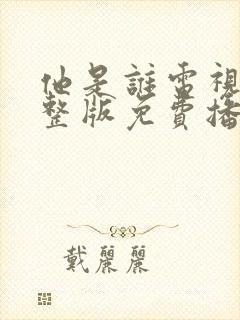 他是誰電視
整版免費播
戴麗麗